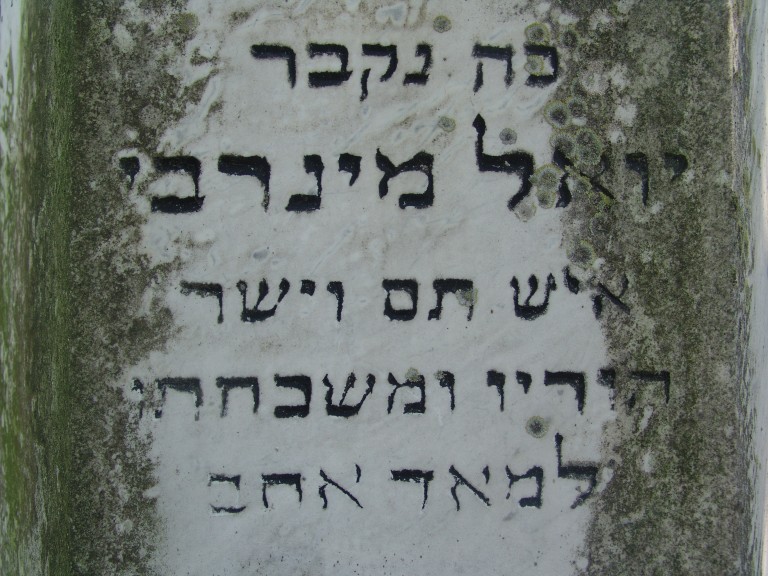 פה נקבר
יואל מינרבי
איש תם וישר
הוריו ומשפחתו
למאד אהב